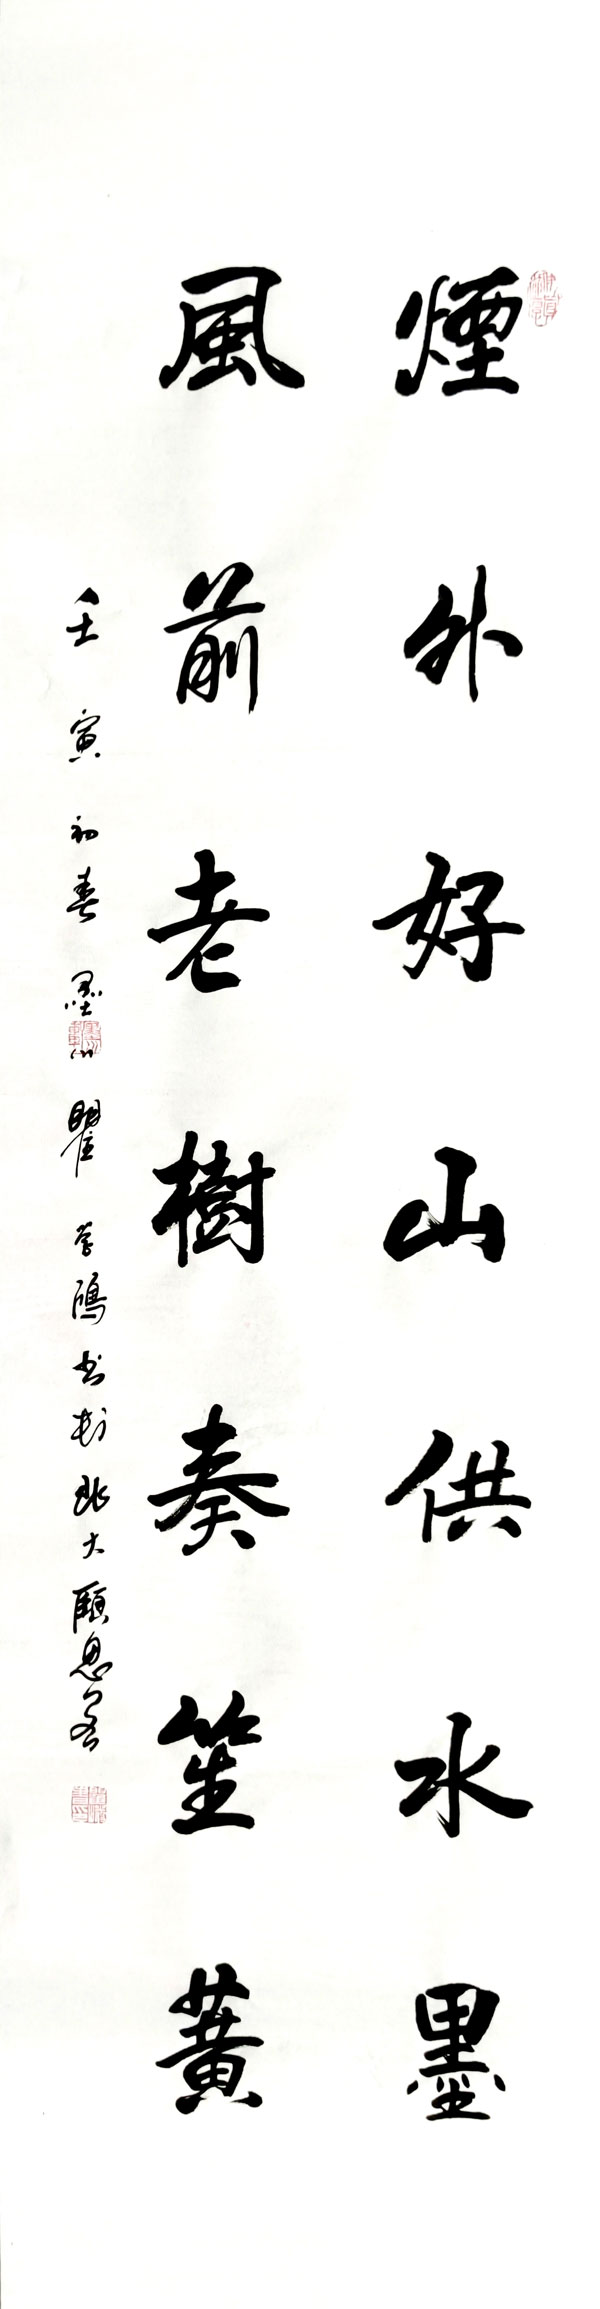 煙外好山供水墨
風前老樹奏笙簧
壬寅初春墨 瞿 書於北大頤思